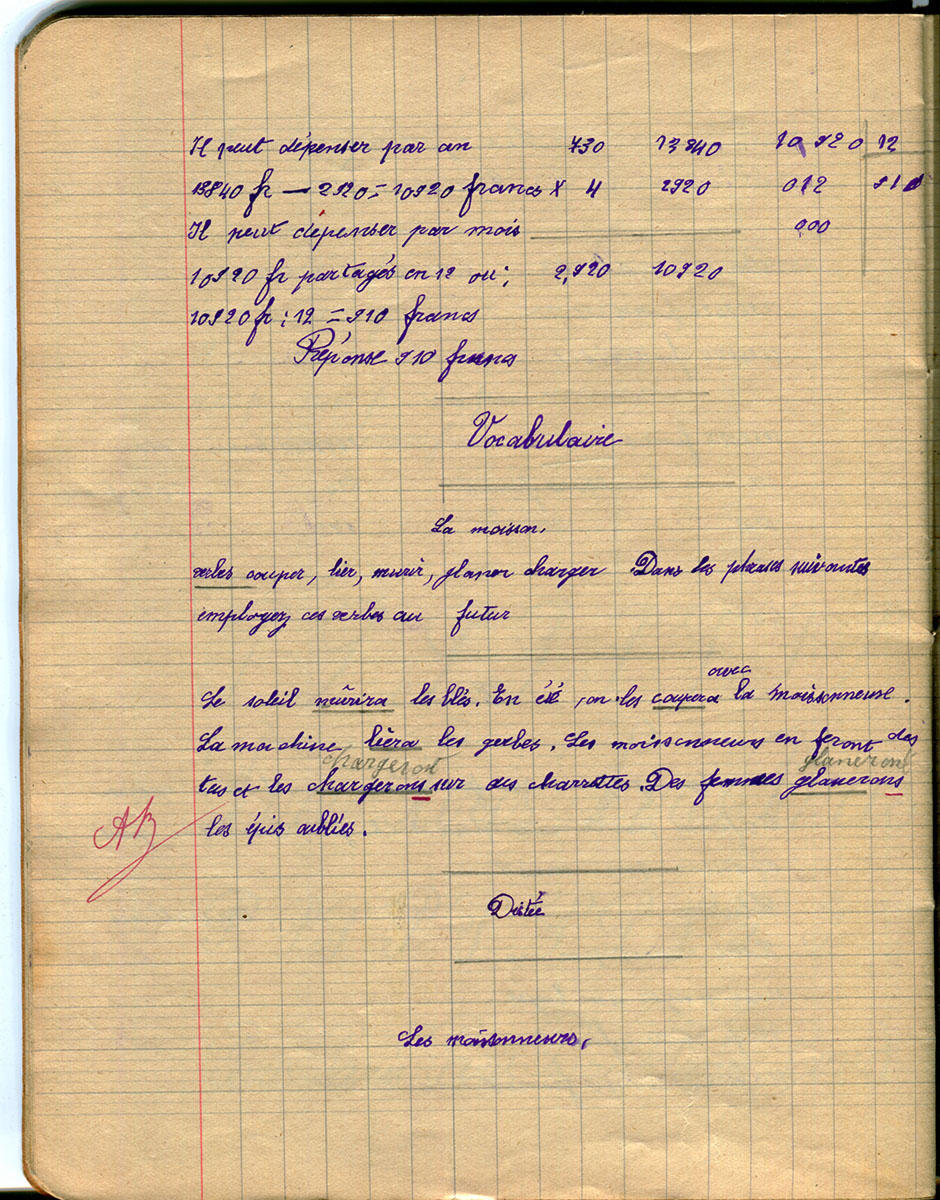 Il peut dépenser par an 730 13840 10920 12
13840 fr — 2920 = 10920 francs × 4 2920 012 910
Il peut dépenser par mois 000
10920 fr partagés en 12 ou ; 2,920 10920
10920 fr : 12 = 910 francs
Réponse 910 francs
Vocabulaire
La moisson.
verbes couper, lier, murir, glaner charger Dans les phrases suivantes
employez ces verbes au futur
avec
Le soleil mûrira les blés. En été, on les coupera la moissonneuse.
La machine liera les gerbes. Les moissonneurs en feront des
chargeront glaneront
tas et les chargerons sur des charrettes. Des femmes glanerons
les épis oubliés.
AB
Dictée
Les moissonneurs.